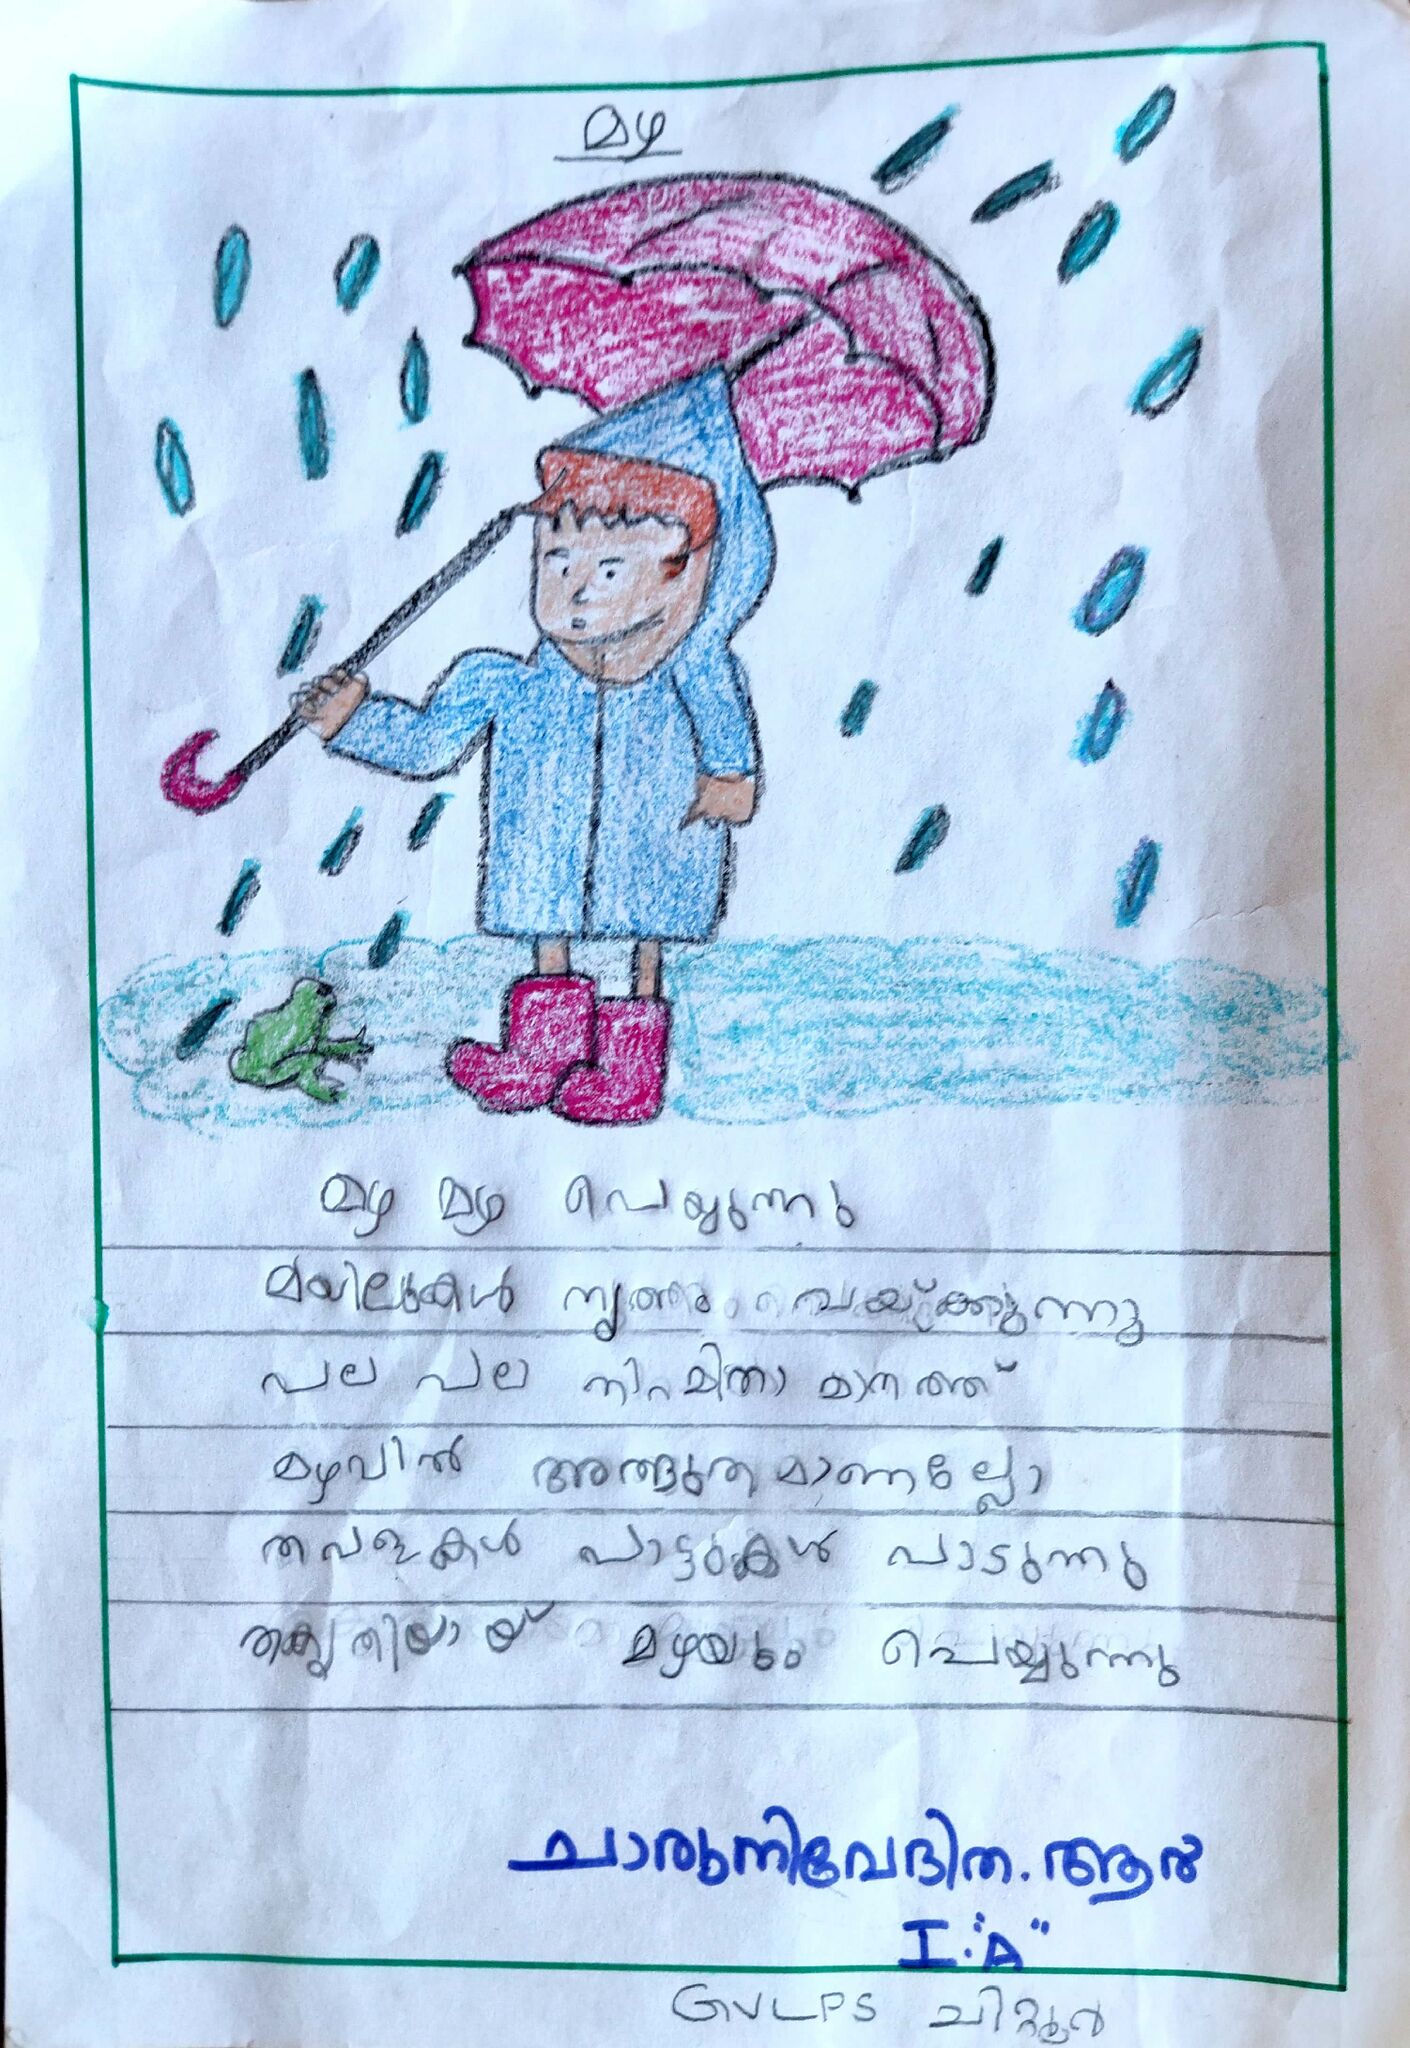 മഴ
മഴ മഴ പെയ്യുന്നു
മയിലുകൾ നൃത്തം ചെയ്ക്കുന്നു
പല പല നിറമിതാ മാനത്ത്
മഴവിൽ അത്ഭുതമാണല്ലോ
തവളകൾ പാട്ടുകൾ പാടുന്നു
തകൃതിയായ് മഴയും പെയ്യുന്നു
ചാരുനിവേദിത. ആർ
I. "A"
GVLPS ചിറ്റൂർ